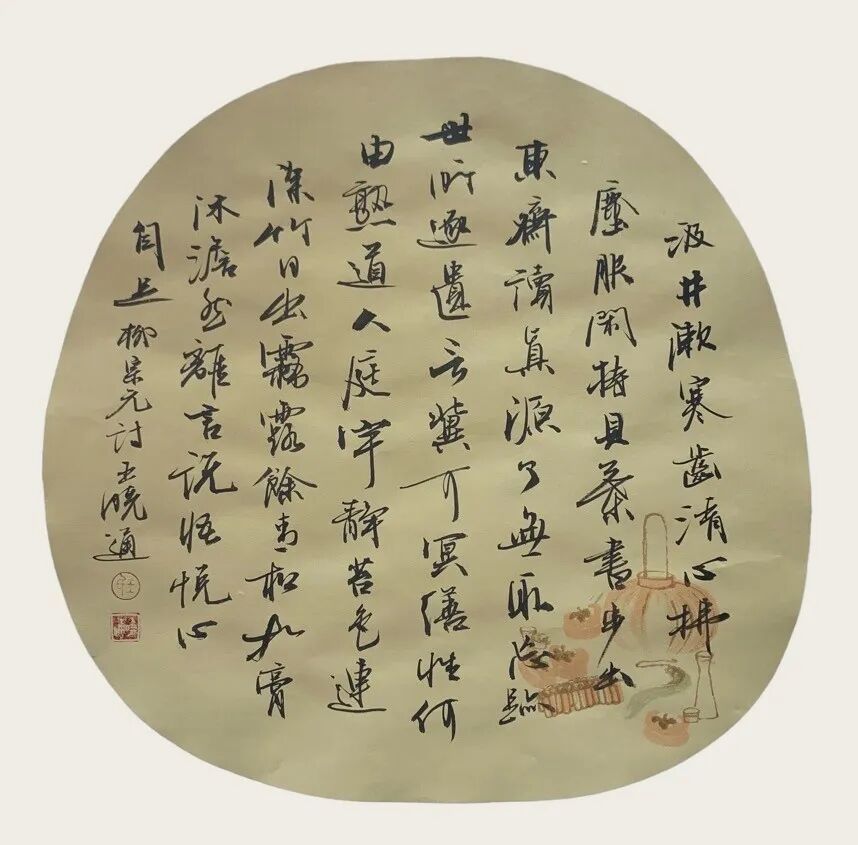 汲井漱寒齒清心拂
塵服閑持貝葉書步出
東齋讀真源了無取忘跡
世所逐遺言冀可冥繕性何
由熟道人庭宇靜苔色連
深竹日出霧露餘青松如膏
沐澹然離言說悟悅心
自足柳宗元詩王曉通